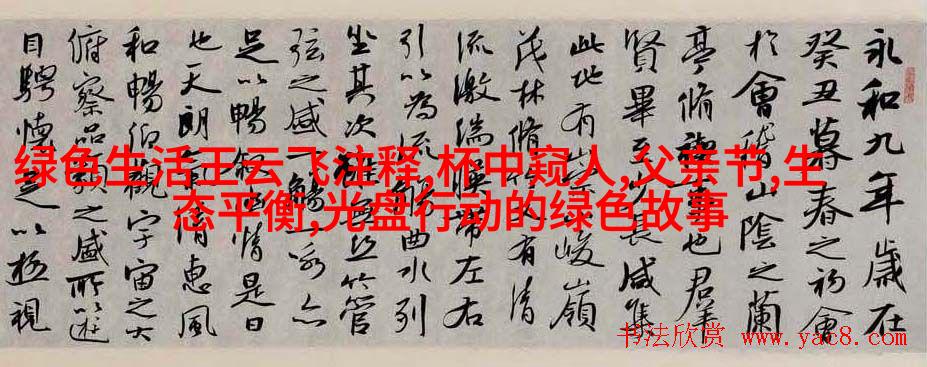 绿色生活王云飞注释,杯中窥人,父亲节,生
态平衡,光盘行动的绿色故事
永和九年歲在
癸丑暮春之初會
於會稽山陰之蘭
亭脩禊事也群
賢畢至少長咸集
此地有崇山峻嶺
茂林脩竹又有清
流激湍暎帶左右
引以為流觴曲水列
坐其次雖無絲竹管
弦之盛一觴一詠亦
足以暢敘幽情是日
也天朗氣清惠風
和暢仰觀宇宙之大
俯察品類之盛所以遊
目騁懷足以極視
书法欣赏 www.yac8.com